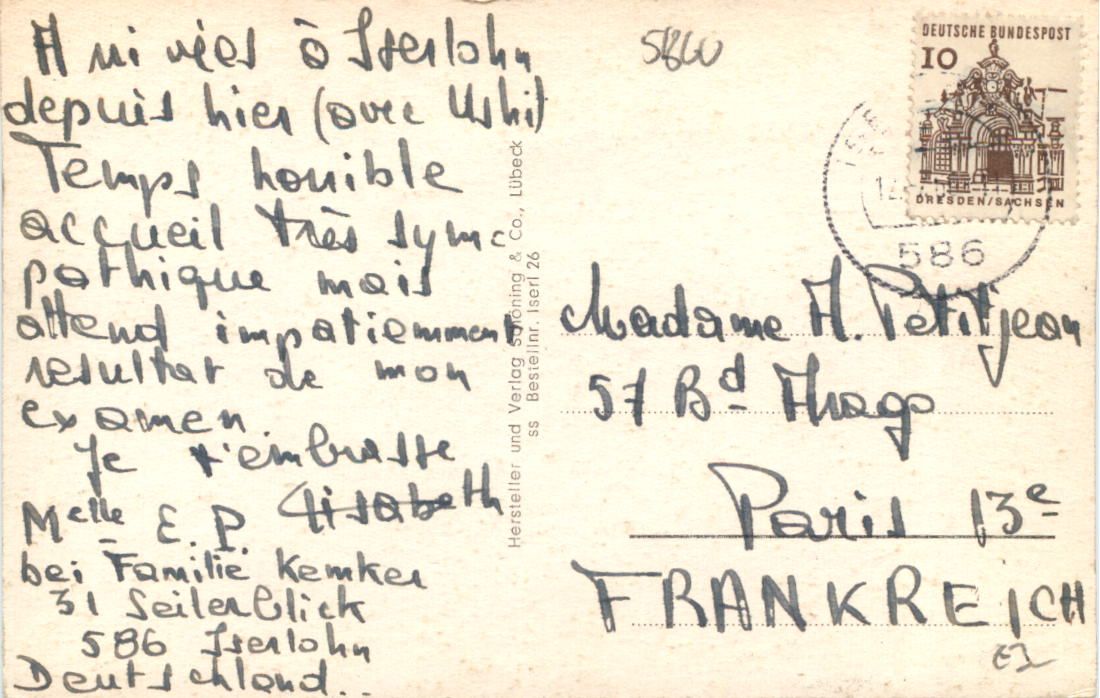 A ni vées à Iserlohn
depuis hier (avec Ushi)
Temps horrible
accueil très sym-
pathique mais
attend impatiemment
resultat de mon
examen.
Je t'embrasse
Elisabeth
Melle E. P.
bei Familie Kemker
31 Seilerblick
586 Iserlohn
Deutschland..
Hersteller und Verlag Schöning & Co., Lübeck
ss Bestellnr. Iserl 26
5860
DEUTSCHE BUNDESPOST
10
DRESDEN/SACHSEN
586
Madame H. Petitjean
57 Bd Arago
Paris 13e
FRANKREICH